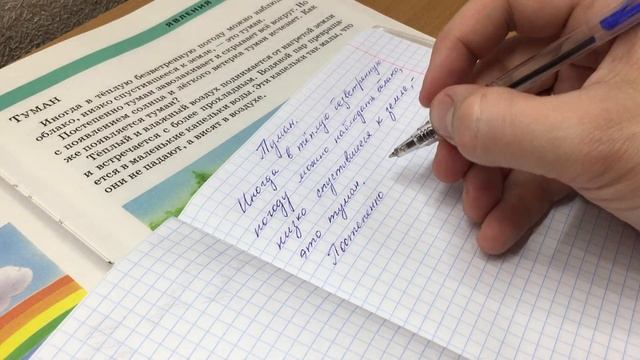 ЯВЛЕНИЯ
ТУМАН
Иногда в тёплую безветренную погоду можно наблю
облако, низко спустившееся к земле, — это туман.
Постепенно туман заволакивает и скрывает всё вокруг. Но
с появлением солнца и лёгкого ветерка туман исчезает. Как
же появляется туман?
Тёплый и влажный воздух поднимается от нагретой земли
и встречается с более прохладным. Водяной пар превраща-
ется в маленькие капельки воды. Эти капельки так малы, что
они не падают, а висят в воздухе.
Туман.
Иногда в тёплую безветренную
погоду можно наблюдать облако,
низко спустившееся к земле, –
это туман.
Постепенно